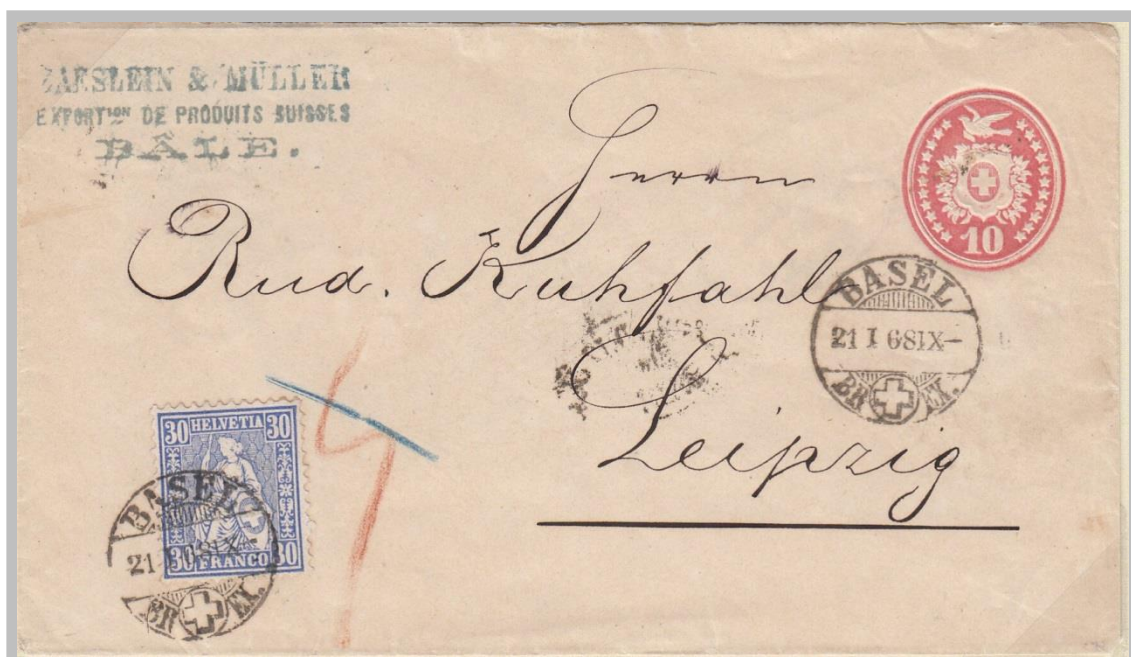 ZAESLEIN & MÜLLER
EXPORTION DE PRODUITS SUISSES
BÂLE.
10
Herrn
Rud. Kuhfahl
Leipzig
BASEL
21 I 68 IX–
BR EX.
30 HELVETIA 30
30 FRANCO 30
BASEL
21 I 68 IX–
BR EX.